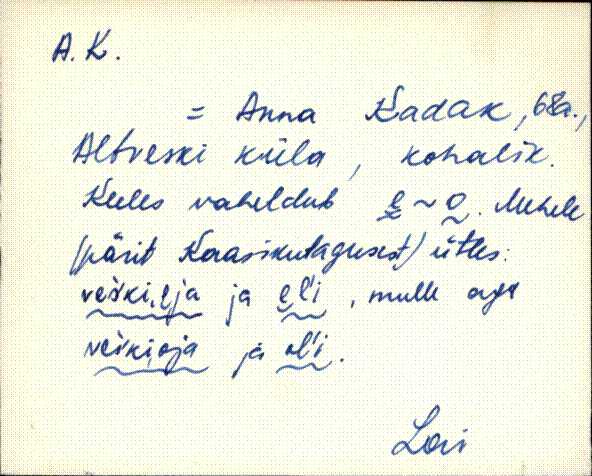 A. K.
= Anna Kadak, 68a.,
Altveski küla, kohalik.
Keeles vaheldub e̮ ~ o. Mehele
(pärit Kaasikutagusest) ütles:
veśki,e̮ja ja e̮l'i, mulle aga
veśki,oja ja ol'i.
Lois